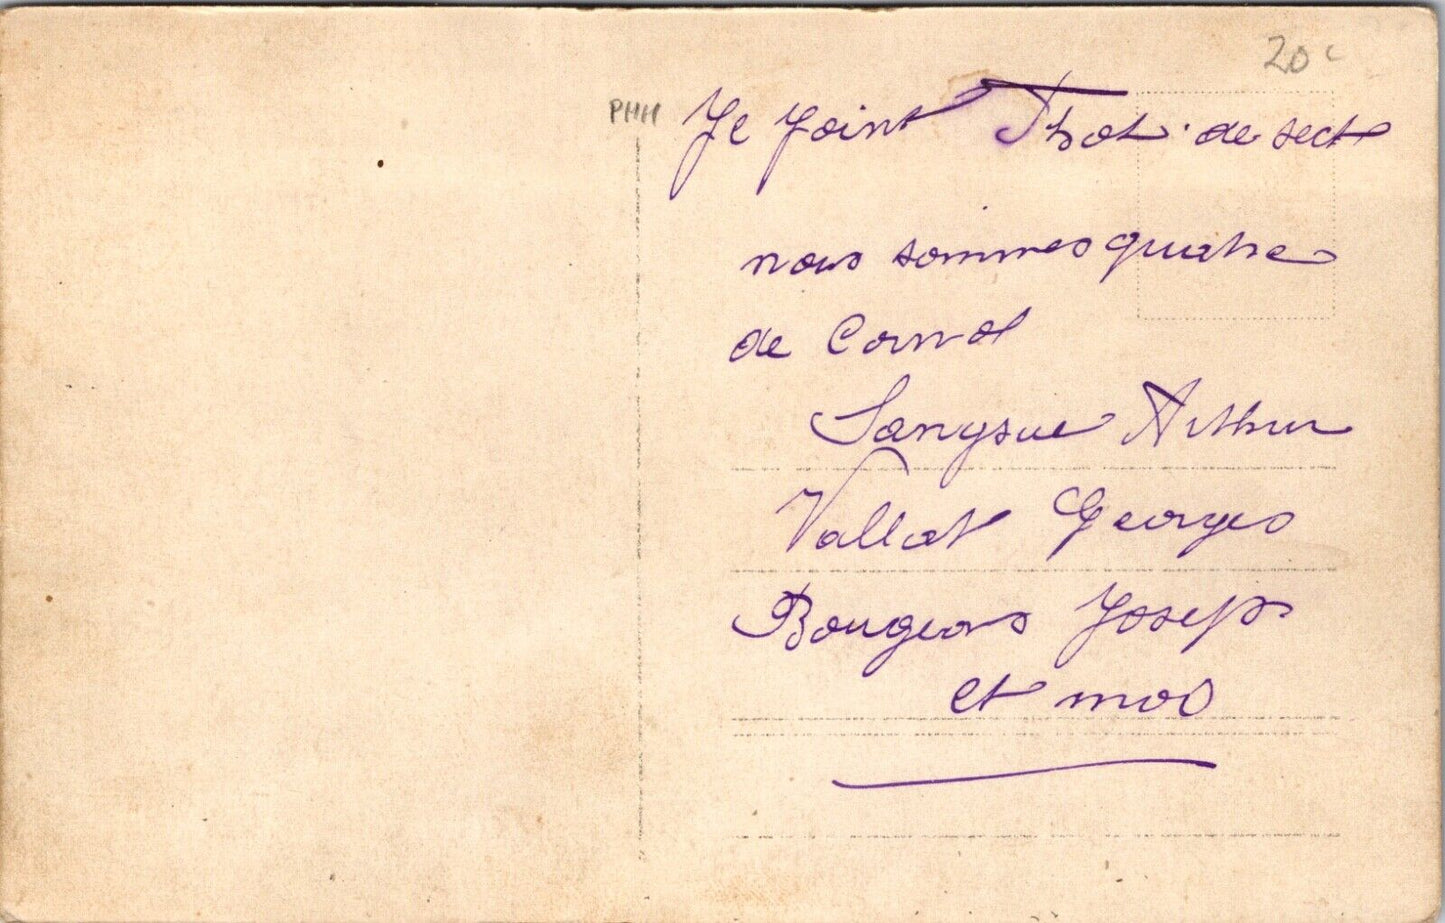 20c
PHH
Je joint Phot. de sect
nous sommes quatre
de
Sangsue Arthur
Vallat Georges
Bougeons Joseph
et moi